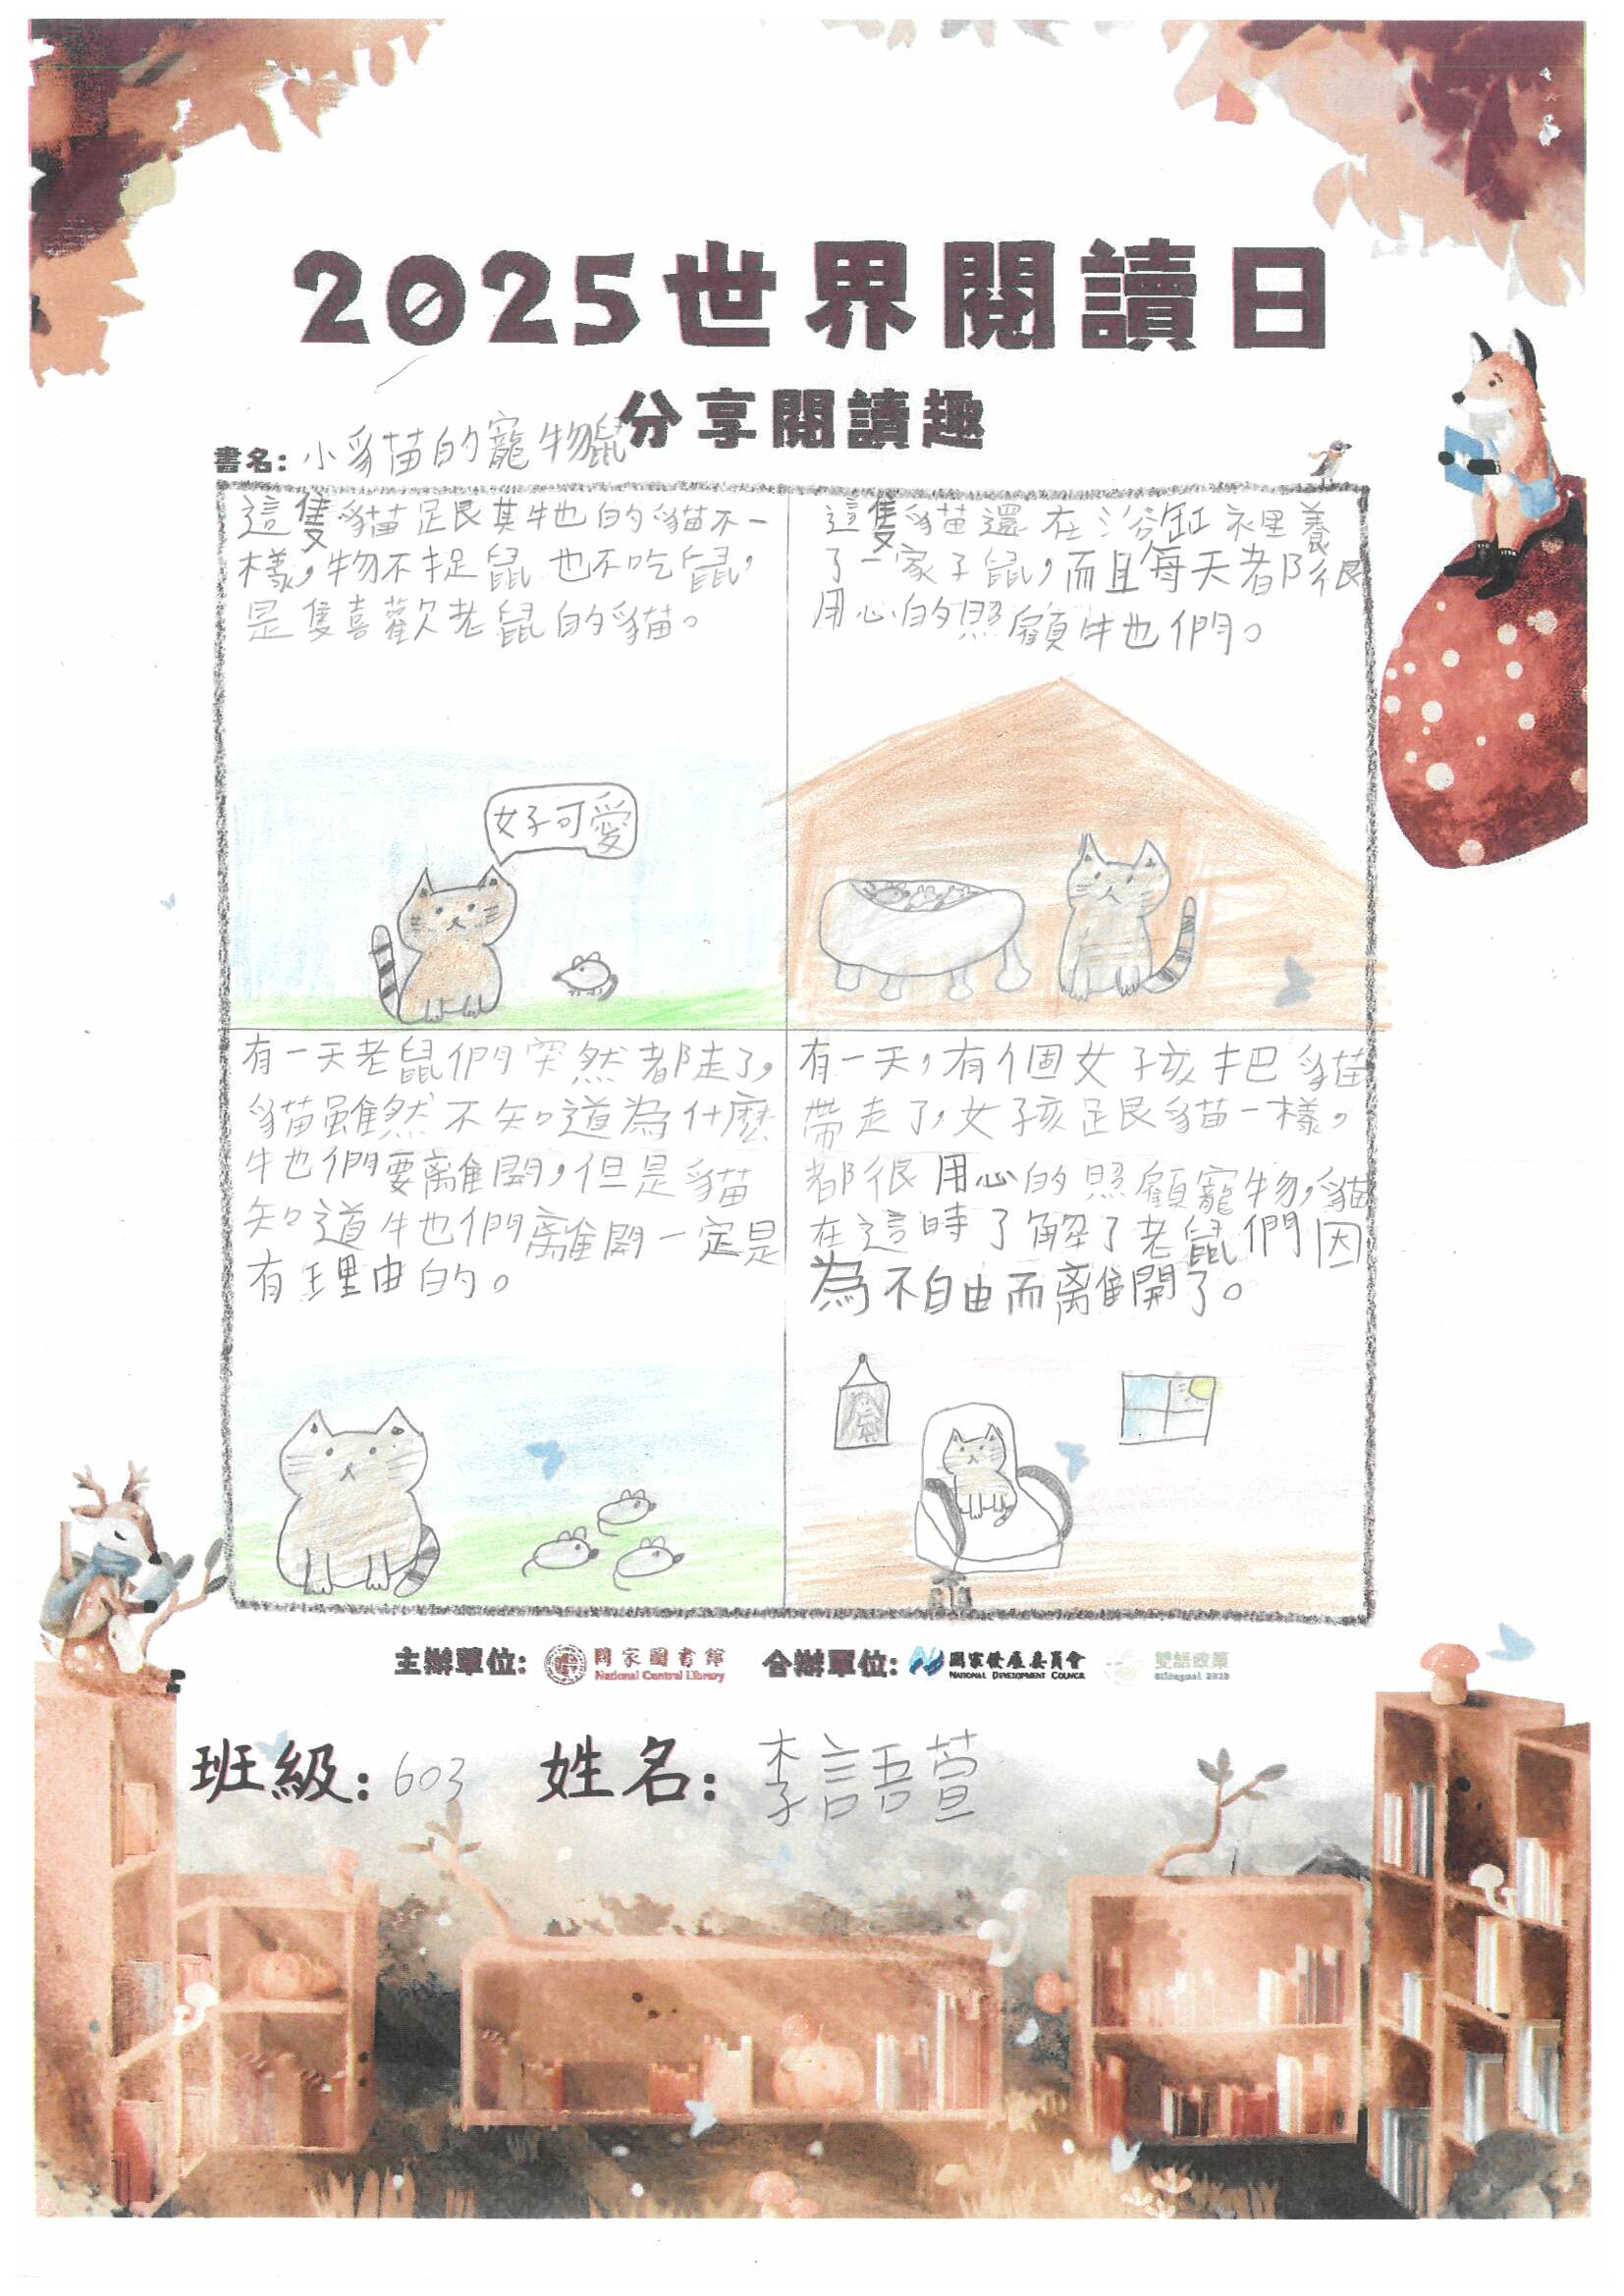 2025世界閱讀日
分享閱讀趣
書名：小貓的寵物鼠
這隻貓跟其牠的貓不一
樣，物不捉鼠也不吃鼠，
是隻喜歡老鼠的貓。
好可愛
這隻貓還在浴缸裡養
了一家子鼠，而且每天都很
用心的照顧牠們。
有一天老鼠們突然都走了，
貓雖然不知道為什麼
牠們要離開，但是貓
知道牠們離開一定是
有理由的。
有一天，有個女孩把貓
帶走了，女孩跟貓一樣，
都很用心的照顧寵物，貓
在這時了解了老鼠們因
為不自由而離開了。
主辦單位：國家圖書館 National Central Library 合辦單位：國家發展委員會 NATIONAL DEVELOPMENT COUNCIL 雙語政策 Bilingual 2030
班級：603 姓名：李語萱